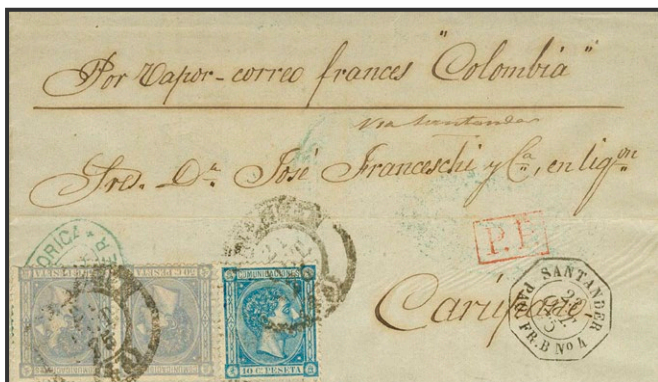 Por Vapor-correo frances "Colombia"
via Santander
Sres. Dn. José Franceschi y Cª, en liqon
P.F.
Carúpano
SANTANDER
PAQ. FR. B No 4
COMUNICACIONES
10 C PESETA
50 C PESETA
50 C PESETA